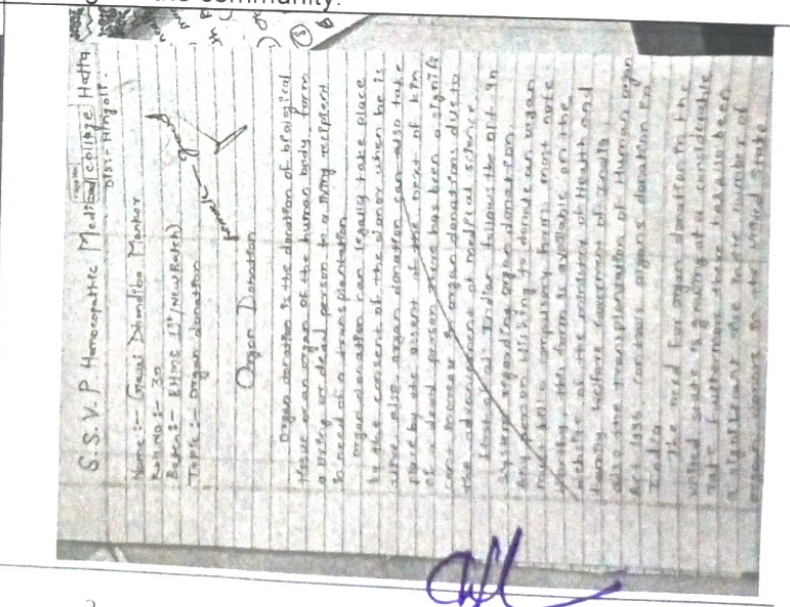 the community.
S.S.V.P Homoeopathic Medical college Hatta
Dist:- Hingoli.
Name :- Gauri Dhondiba Mankar
Roll No :- 30
Batch :- BHMS 1st (New Batch)
Topic :- Organ donation
Organ Donation
Organ donation is the donation of biological
tissue or an organ of the human body, form
a living or dead person to a living recipient
in need of a transplantation
organ donation can legally take place
by the consent of the donor when he is
alive also organ donation can also take
place by the assent of the next of kin
of a dead person there has been a signifi
cant increase in organ donations due to
the advancement of medical science
India follows the opt in
system regarding organ donation
Any person wishing to donate an organ
must fill a compulsory form most note
the form is available on the
website of the ministry of Health and
family welfare Government of India
also the transplantation of Human organ
Act 1994 controls organs donation in
India
The need for organ donation in the
united state is growing at a considerable
rate furthermore there has also been
a significant in the number of
organ donors in the united State